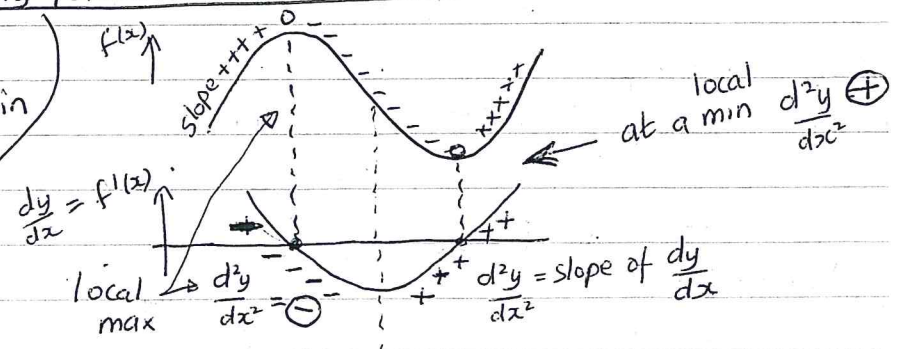 f(x)
in
slope ++++ 0 - - - - - - - 0 +++++
local
at a min d²y/dx² ⊕
dy/dx = f'(x)
+ - - - - - + + + + +
local max
d²y/dx² = ⊖
d²y/dx² = slope of dy/dx